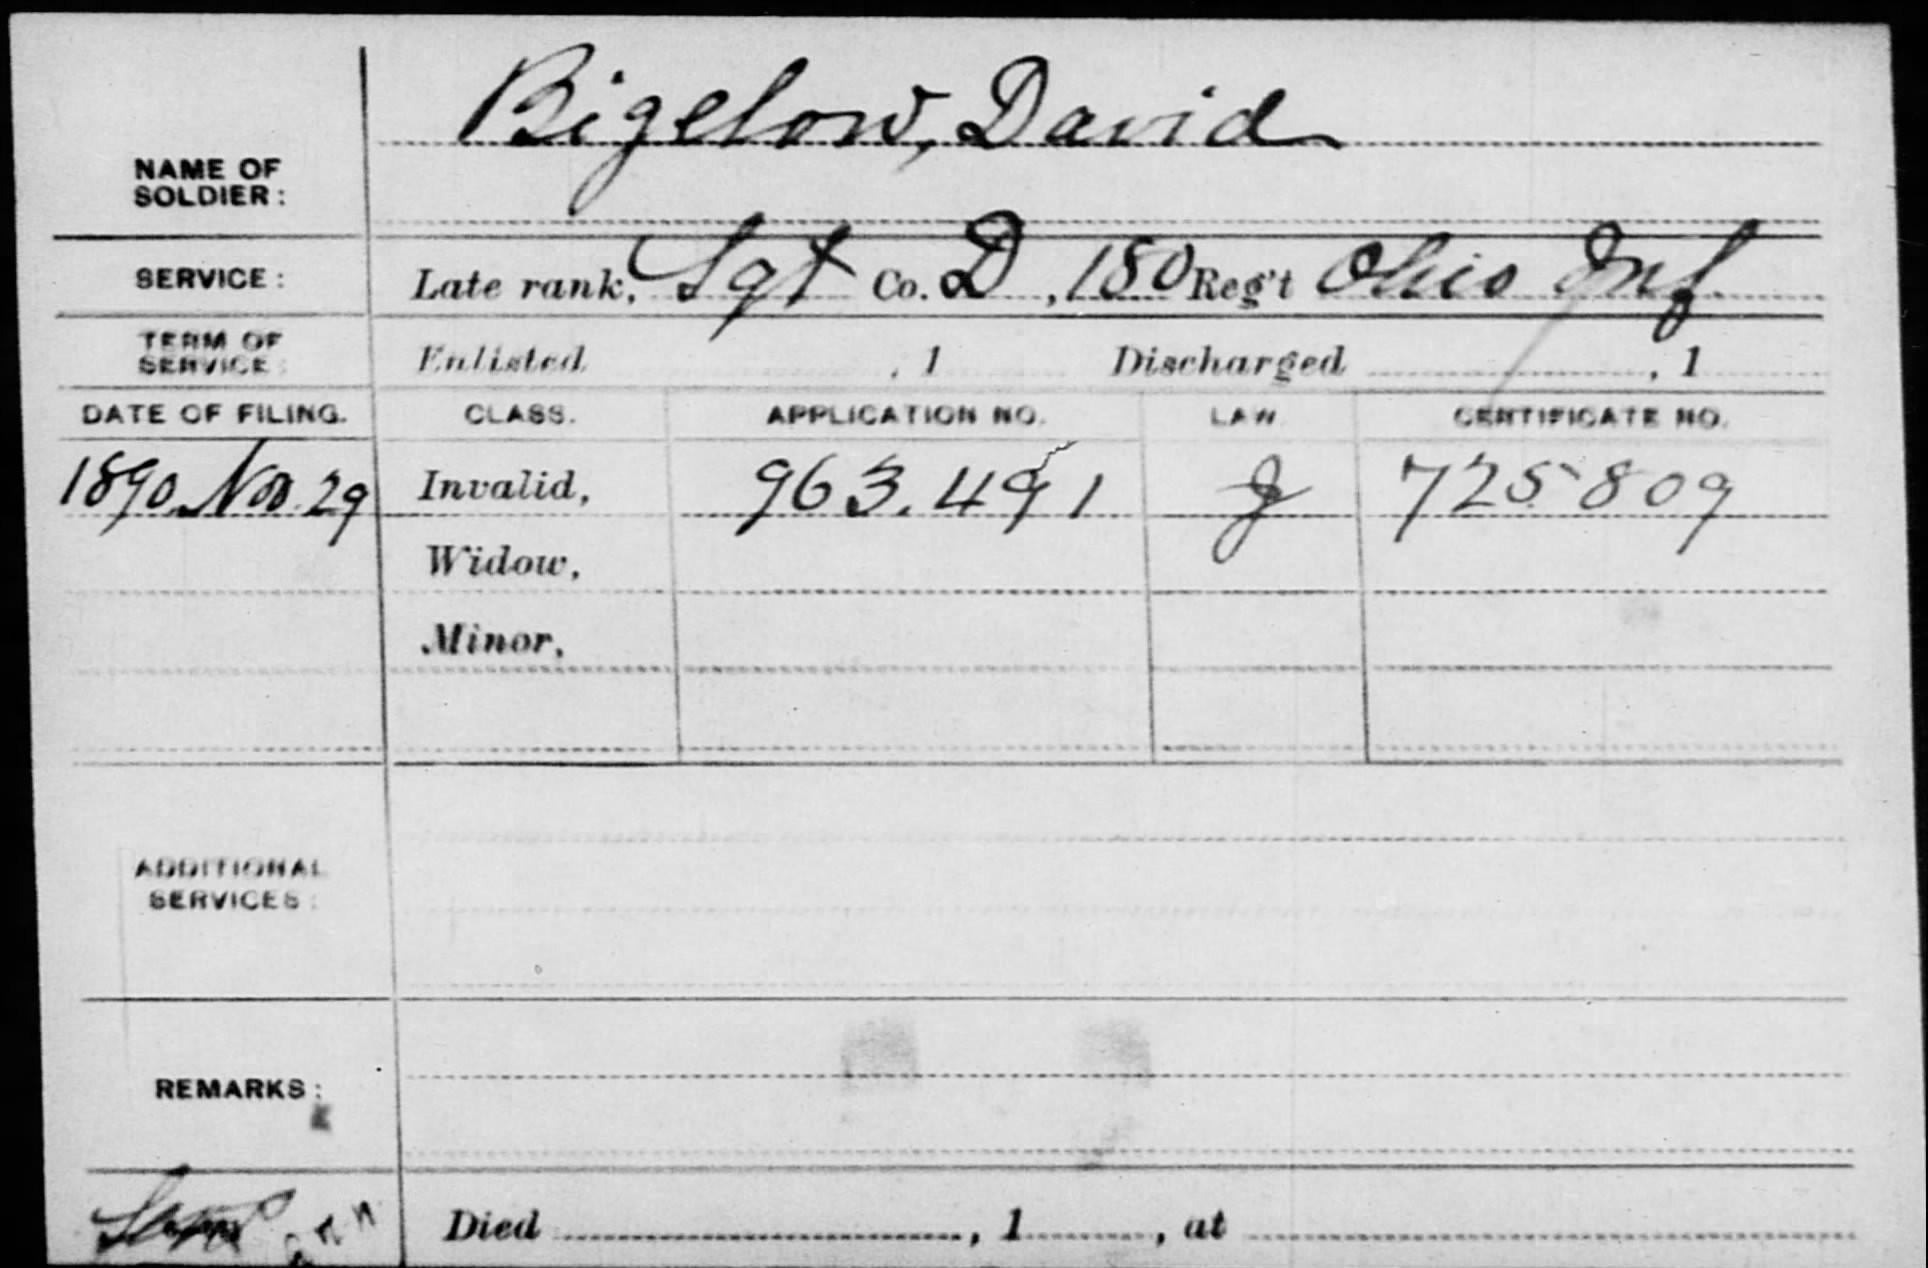 Bigelow, David
NAME OF
SOLDIER:
SERVICE: Late rank, Sgt Co. D, 180 Reg't Ohio Inf
TERM OF
SERVICE: Enlisted , 1 Discharged , 1
DATE OF FILING. CLASS. APPLICATION NO. LAW. CERTIFICATE NO.
1890 Nov. 29 Invalid, 963.491 J 725809
Widow,
Minor,
ADDITIONAL
SERVICES:
REMARKS:
Died , 1 , at